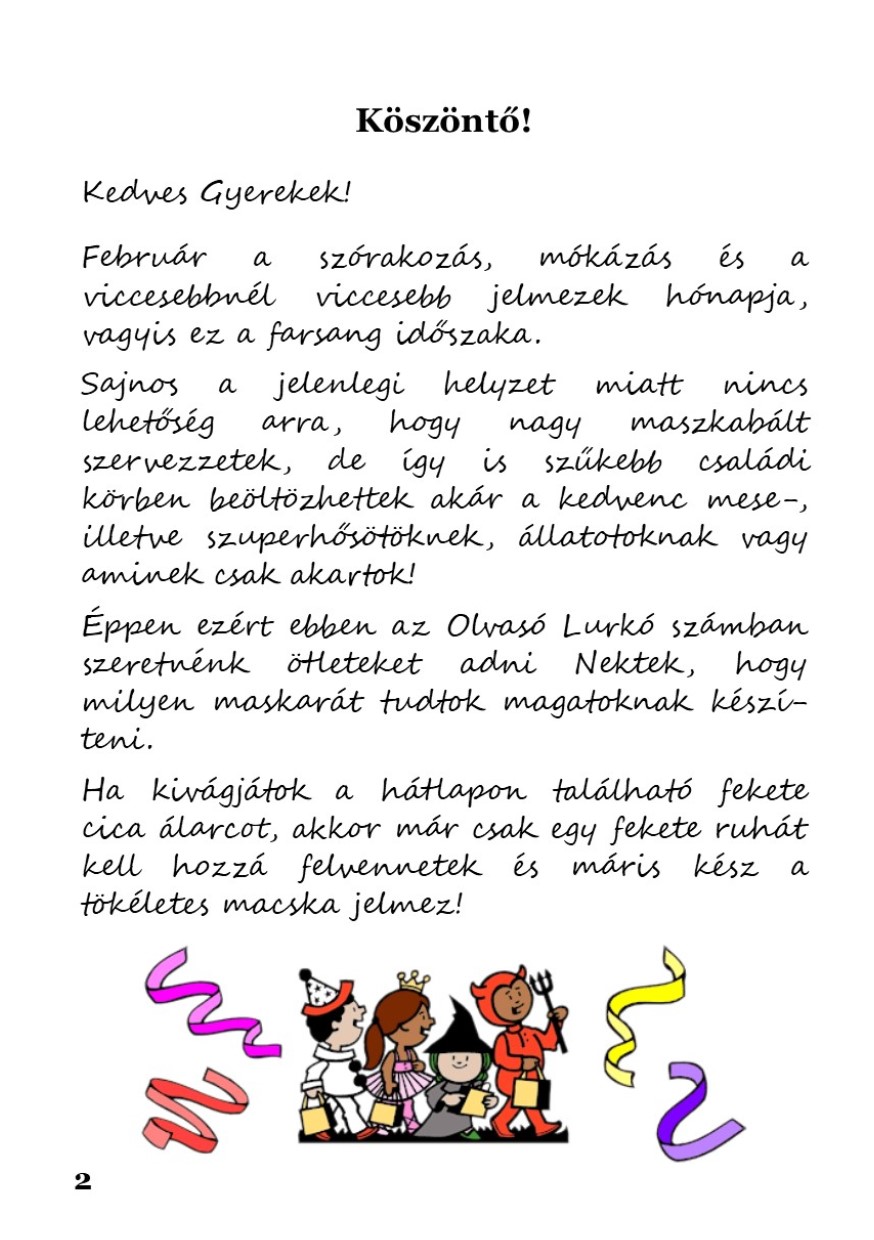 Köszöntő!
Kedves Gyerekek!
Február a szórakozás, mókázás és a
viccesebbnél viccesebb jelmezek hónapja,
vagyis ez a farsang időszaka.
Sajnos a jelenlegi helyzet miatt nincs
lehetőség arra, hogy nagy maszkabált
szervezzetek, de így is szűkebb családi
körben beöltözhettek akár a kedvenc mese-,
illetve szuperhősötöknek, állatotoknak vagy
aminek csak akartok!
Éppen ezért ebben az Olvasó Lurkó számban
szeretnénk ötleteket adni Nektek, hogy
milyen maskarát tudtok magatoknak készí-
teni.
Ha kivágjátok a hátlapon található fekete
cica álarcot, akkor már csak egy fekete ruhát
kell hozzá felvennetek és máris kész a
tökéletes macska jelmez!
2